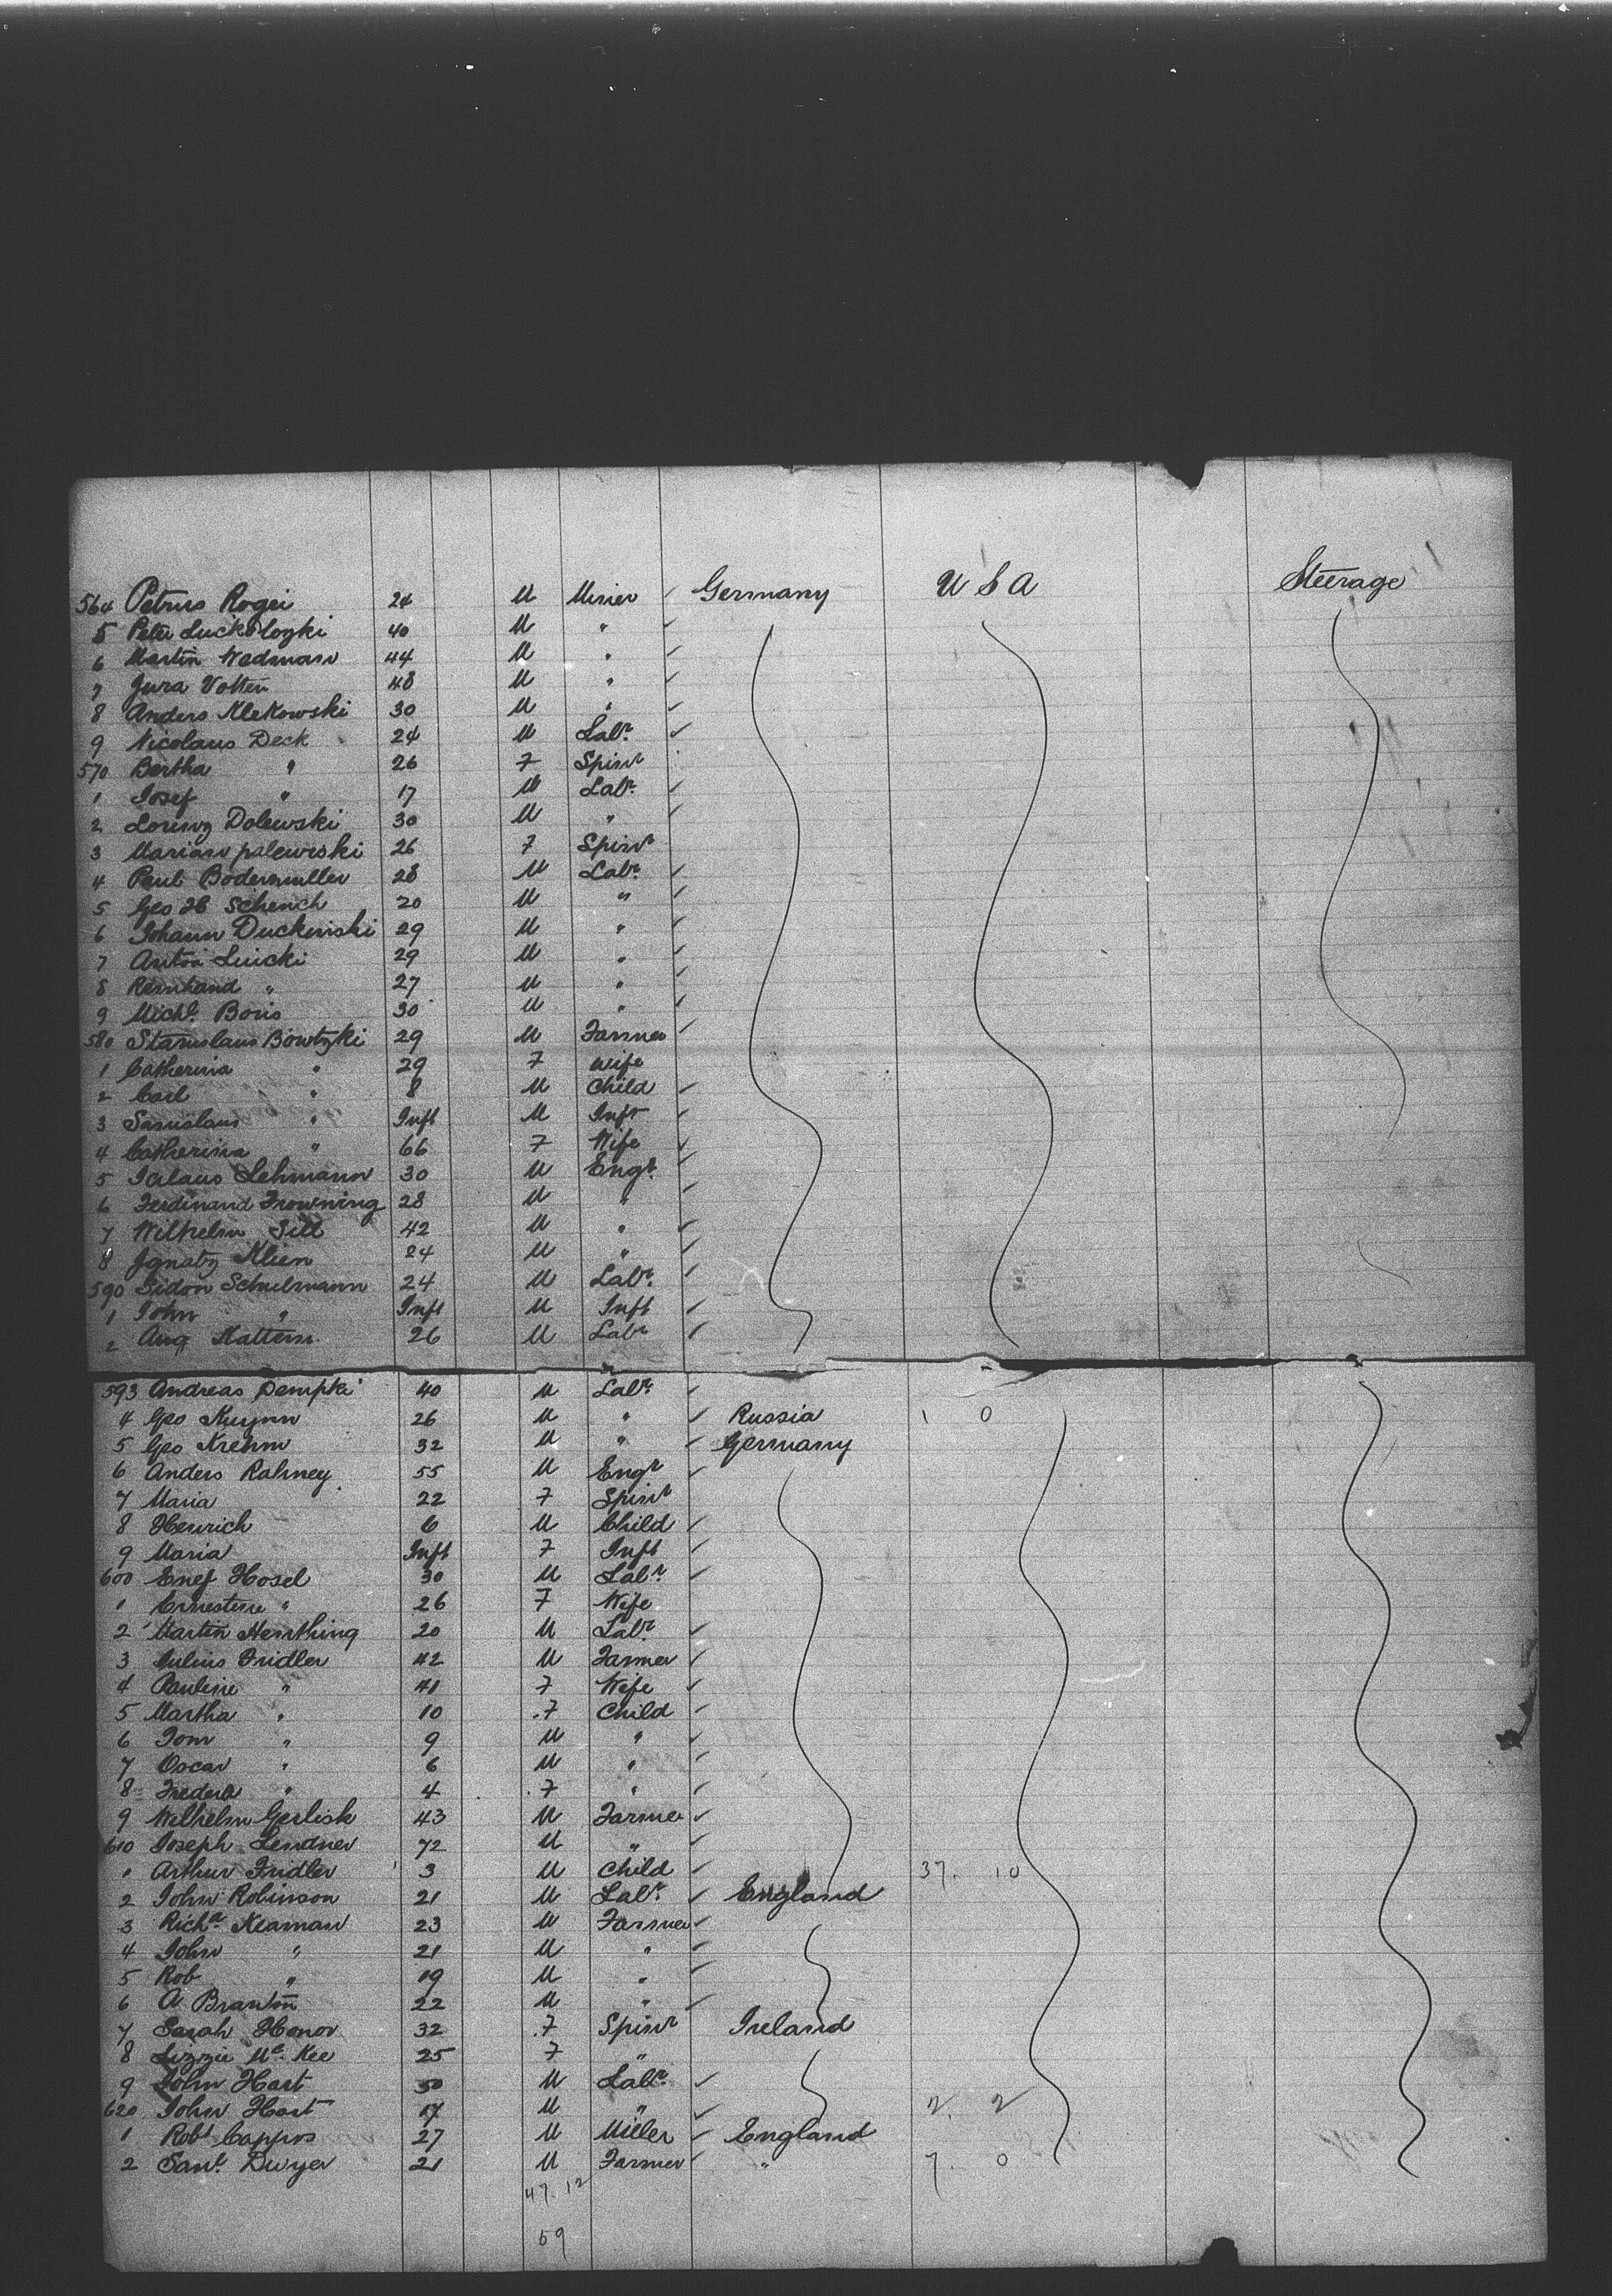 564 Petrus Rogei 24 M Miner Germany U S A Steerage
5 Peter Lucklozki 40 M "
6 Martin Wedmann 44 M "
7 Jura Votten 48 M "
8 Anders Klekowski 30 M "
9 Nicolaus Deck 24 M Labr.
570 Bertha " 26 F Spinr
1 Josef " 17 M Labr.
2 Lorenz Dolewski 30 M "
3 Marian palewski 26 F Spinr
4 Paul Bodenmuller 28 M Labr.
5 Geo H Schench 20 M "
6 Johann Duckenski 29 M "
7 Anton Luicki 29 M "
8 Reinhand " 27 M "
9 Michl. Boris 30 M "
580 Stanislaus Bowtzki 29 M Farmer
1 Catherina " 29 F Wife
2 Carl " 8 M Child
3 Sanislaus " Inft M Inft
4 Catherina " 66 F Wife
5 Lehmann 30 M Engr.
6 Ferdinand Frowning 28 M "
7 Wilhelm Sill 42 M "
8 Ignatz Klien 24 M "
590 Sidon Schulmann 24 M Labr.
1 John " Inft M Inft
2 Aug Kattern 26 M Labr
593 Andreas Dempki 40 M Labr.
4 Geo Kuynn 26 M " Russia 1 0
5 Geo Krehm 32 M " Germany
6 Anders Rahney 55 M Engr
7 Maria 22 F Spinr
8 Henrich 6 M Child
9 Maria Inft F Inft
600 Enef Hosel 30 M Labr.
1 Ernestine " 26 F Wife
2 Martin Henthing 20 M Labr.
3 Julius Fridler 42 M Farmer
4 Pauline " 41 F Wife
5 Martha " 10 F Child
6 Tom " 9 M "
7 Oscar " 6 M "
8 " 4 F "
9 Wilhelm Gerlisk 43 M Farmer
610 Joseph Lendner 72 M "
1 Arthur Fridler 3 M Child 37. 10
2 John Robinson 21 M Labr. England
3 Richd Keaman 23 M Farmer
4 John " 21 M "
5 Rob " 19 M "
6 A Branton 22 M "
7 Sarah Honor 32 F Spinr Ireland
8 Lizzie Mc Kee 25 F "
9 John Hart 50 M Labr.
620 John Hart 17 M " 2. 2
1 Robt Cappos 27 M Miller England
2 Saml. Dwyer 21 M Farmer " 7 0
47. 12
59